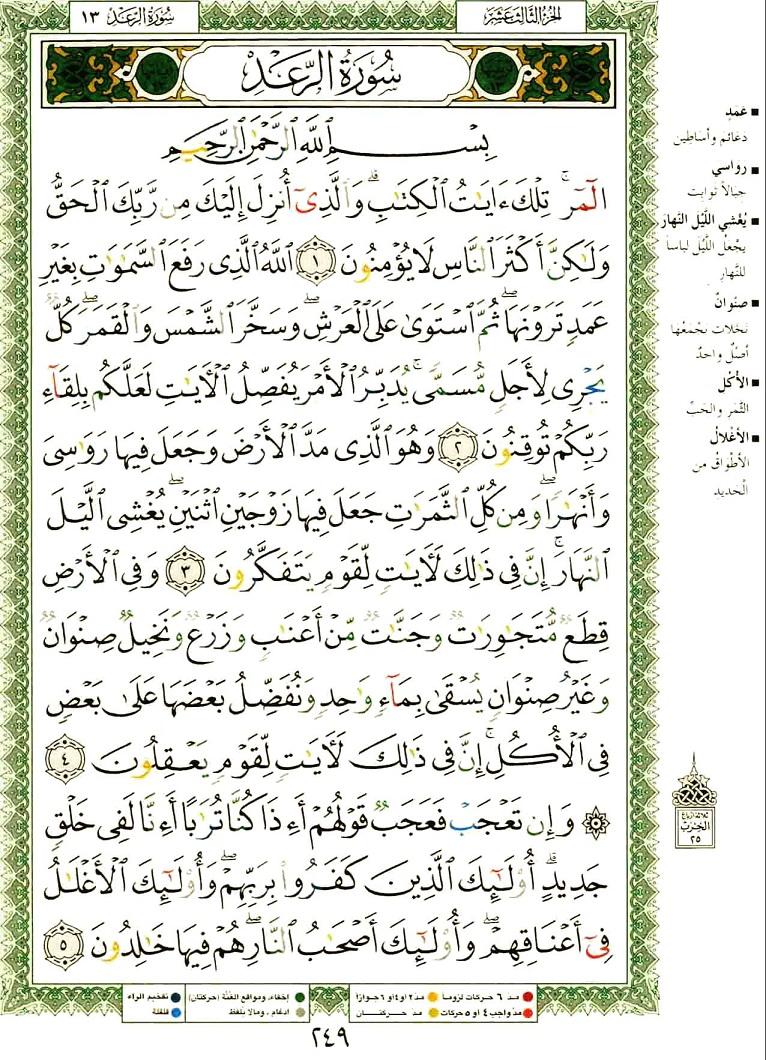 الجزء الثالث عشر
سُورَةُ الرَّعْدِ ١٣
سُورَةُ الرَّعْدِ
بِسْمِ ٱللَّهِ ٱلرَّحْمَٰنِ ٱلرَّحِيمِ
الٓمٓر ۚ تِلْكَ ءَايَٰتُ ٱلْكِتَٰبِ ۗ وَٱلَّذِىٓ أُنزِلَ إِلَيْكَ مِن رَّبِّكَ ٱلْحَقُّ
وَلَٰكِنَّ أَكْثَرَ ٱلنَّاسِ لَا يُؤْمِنُونَ ١ ٱللَّهُ ٱلَّذِى رَفَعَ ٱلسَّمَٰوَٰتِ بِغَيْرِ
عَمَدٍ تَرَوْنَهَا ۖ ثُمَّ ٱسْتَوَىٰ عَلَى ٱلْعَرْشِ ۖ وَسَخَّرَ ٱلشَّمْسَ وَٱلْقَمَرَ ۖ كُلٌّ
يَجْرِى لِأَجَلٍ مُّسَمًّى ۚ يُدَبِّرُ ٱلْأَمْرَ يُفَصِّلُ ٱلْءَايَٰتِ لَعَلَّكُم بِلِقَآءِ
رَبِّكُمْ تُوقِنُونَ ٢ وَهُوَ ٱلَّذِى مَدَّ ٱلْأَرْضَ وَجَعَلَ فِيهَا رَوَٰسِىَ
وَأَنْهَٰرًا ۖ وَمِن كُلِّ ٱلثَّمَرَٰتِ جَعَلَ فِيهَا زَوْجَيْنِ ٱثْنَيْنِ ۖ يُغْشِى ٱلَّيْلَ
ٱلنَّهَارَ ۚ إِنَّ فِى ذَٰلِكَ لَءَايَٰتٍ لِّقَوْمٍ يَتَفَكَّرُونَ ٣ وَفِى ٱلْأَرْضِ
قِطَعٌ مُّتَجَٰوِرَٰتٌ وَجَنَّٰتٌ مِّنْ أَعْنَٰبٍ وَزَرْعٌ وَنَخِيلٌ صِنْوَانٌ
وَغَيْرُ صِنْوَانٍ يُسْقَىٰ بِمَآءٍ وَٰحِدٍ وَنُفَضِّلُ بَعْضَهَا عَلَىٰ بَعْضٍ
فِى ٱلْأُكُلِ ۚ إِنَّ فِى ذَٰلِكَ لَءَايَٰتٍ لِّقَوْمٍ يَعْقِلُونَ ٤
۞ وَإِن تَعْجَبْ فَعَجَبٌ قَوْلُهُمْ أَءِذَا كُنَّا تُرَٰبًا أَءِنَّا لَفِى خَلْقٍ
جَدِيدٍ ۗ أُو۟لَٰٓئِكَ ٱلَّذِينَ كَفَرُوا۟ بِرَبِّهِمْ ۖ وَأُو۟لَٰٓئِكَ ٱلْأَغْلَٰلُ
فِىٓ أَعْنَاقِهِمْ ۖ وَأُو۟لَٰٓئِكَ أَصْحَٰبُ ٱلنَّارِ ۖ هُمْ فِيهَا خَٰلِدُونَ ٥
■ عَمَدٍ
دعائم وأساطين
■ رواسي
جبالاً ثوابت
■ يُغْشي اللَّيْل النَّهار
يجعلُ اللَّيْلَ لباساً
للنَّهار
■ صنوانٌ
نخلات يجمعُها
أصلٌ واحدٌ
■ الأكُل
الثَّمر والحَبّ
■ الأغلالُ
الأطواقُ من
الحديد
ثلاثة أرباع
الحزب
٢٥
مد ٦ حركات لزوماً
مد ٢ أو ٤ أو ٦ جوازاً
إخفاء، ومواقع الغنّة (حركتان)
تفخيم الراء
مد واجب ٤ أو ٥ حركات
مد حركتان
ادغام، ومالا يلفظ
قلقلة
٢٤٩